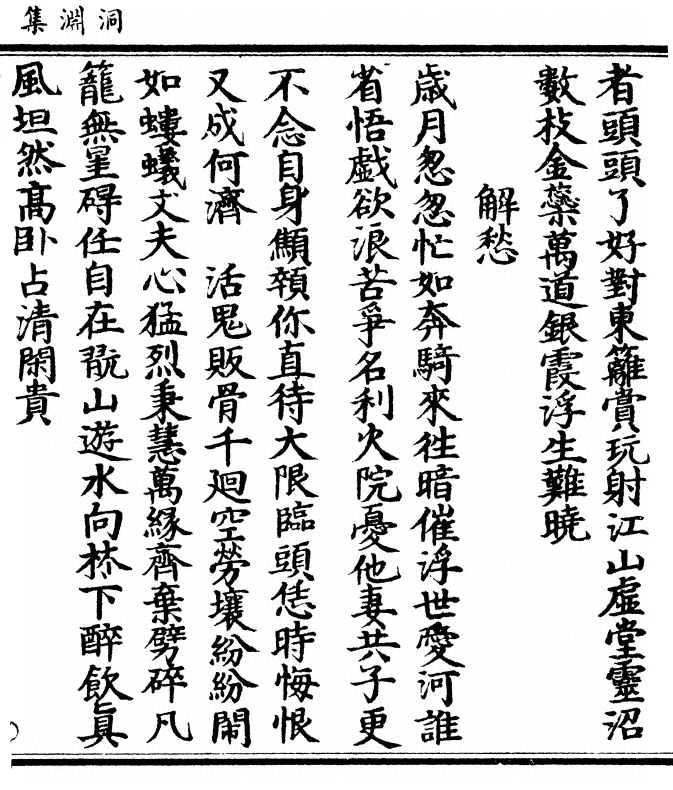 洞淵集
者頭頭了好對東籬賞玩射江山虛堂靈沼
數枝金蘂萬道銀霞浮生難曉
解愁
歲月忽忽忙如奔騎來往暗催浮世愛河誰
省悟戲欲浪苦爭名利火院憂他妻共子更
不念自身顦顇你直待大限臨頭恁時悔恨
又成何濟　活鬼販骨千廻空勞壤紛紛閙
如螻蟻丈夫心猛烈秉慧萬緣齊棄劈碎凡
籠無罣碍任自在翫山遊水向林下醉飲眞
風坦然高卧占清閑貴